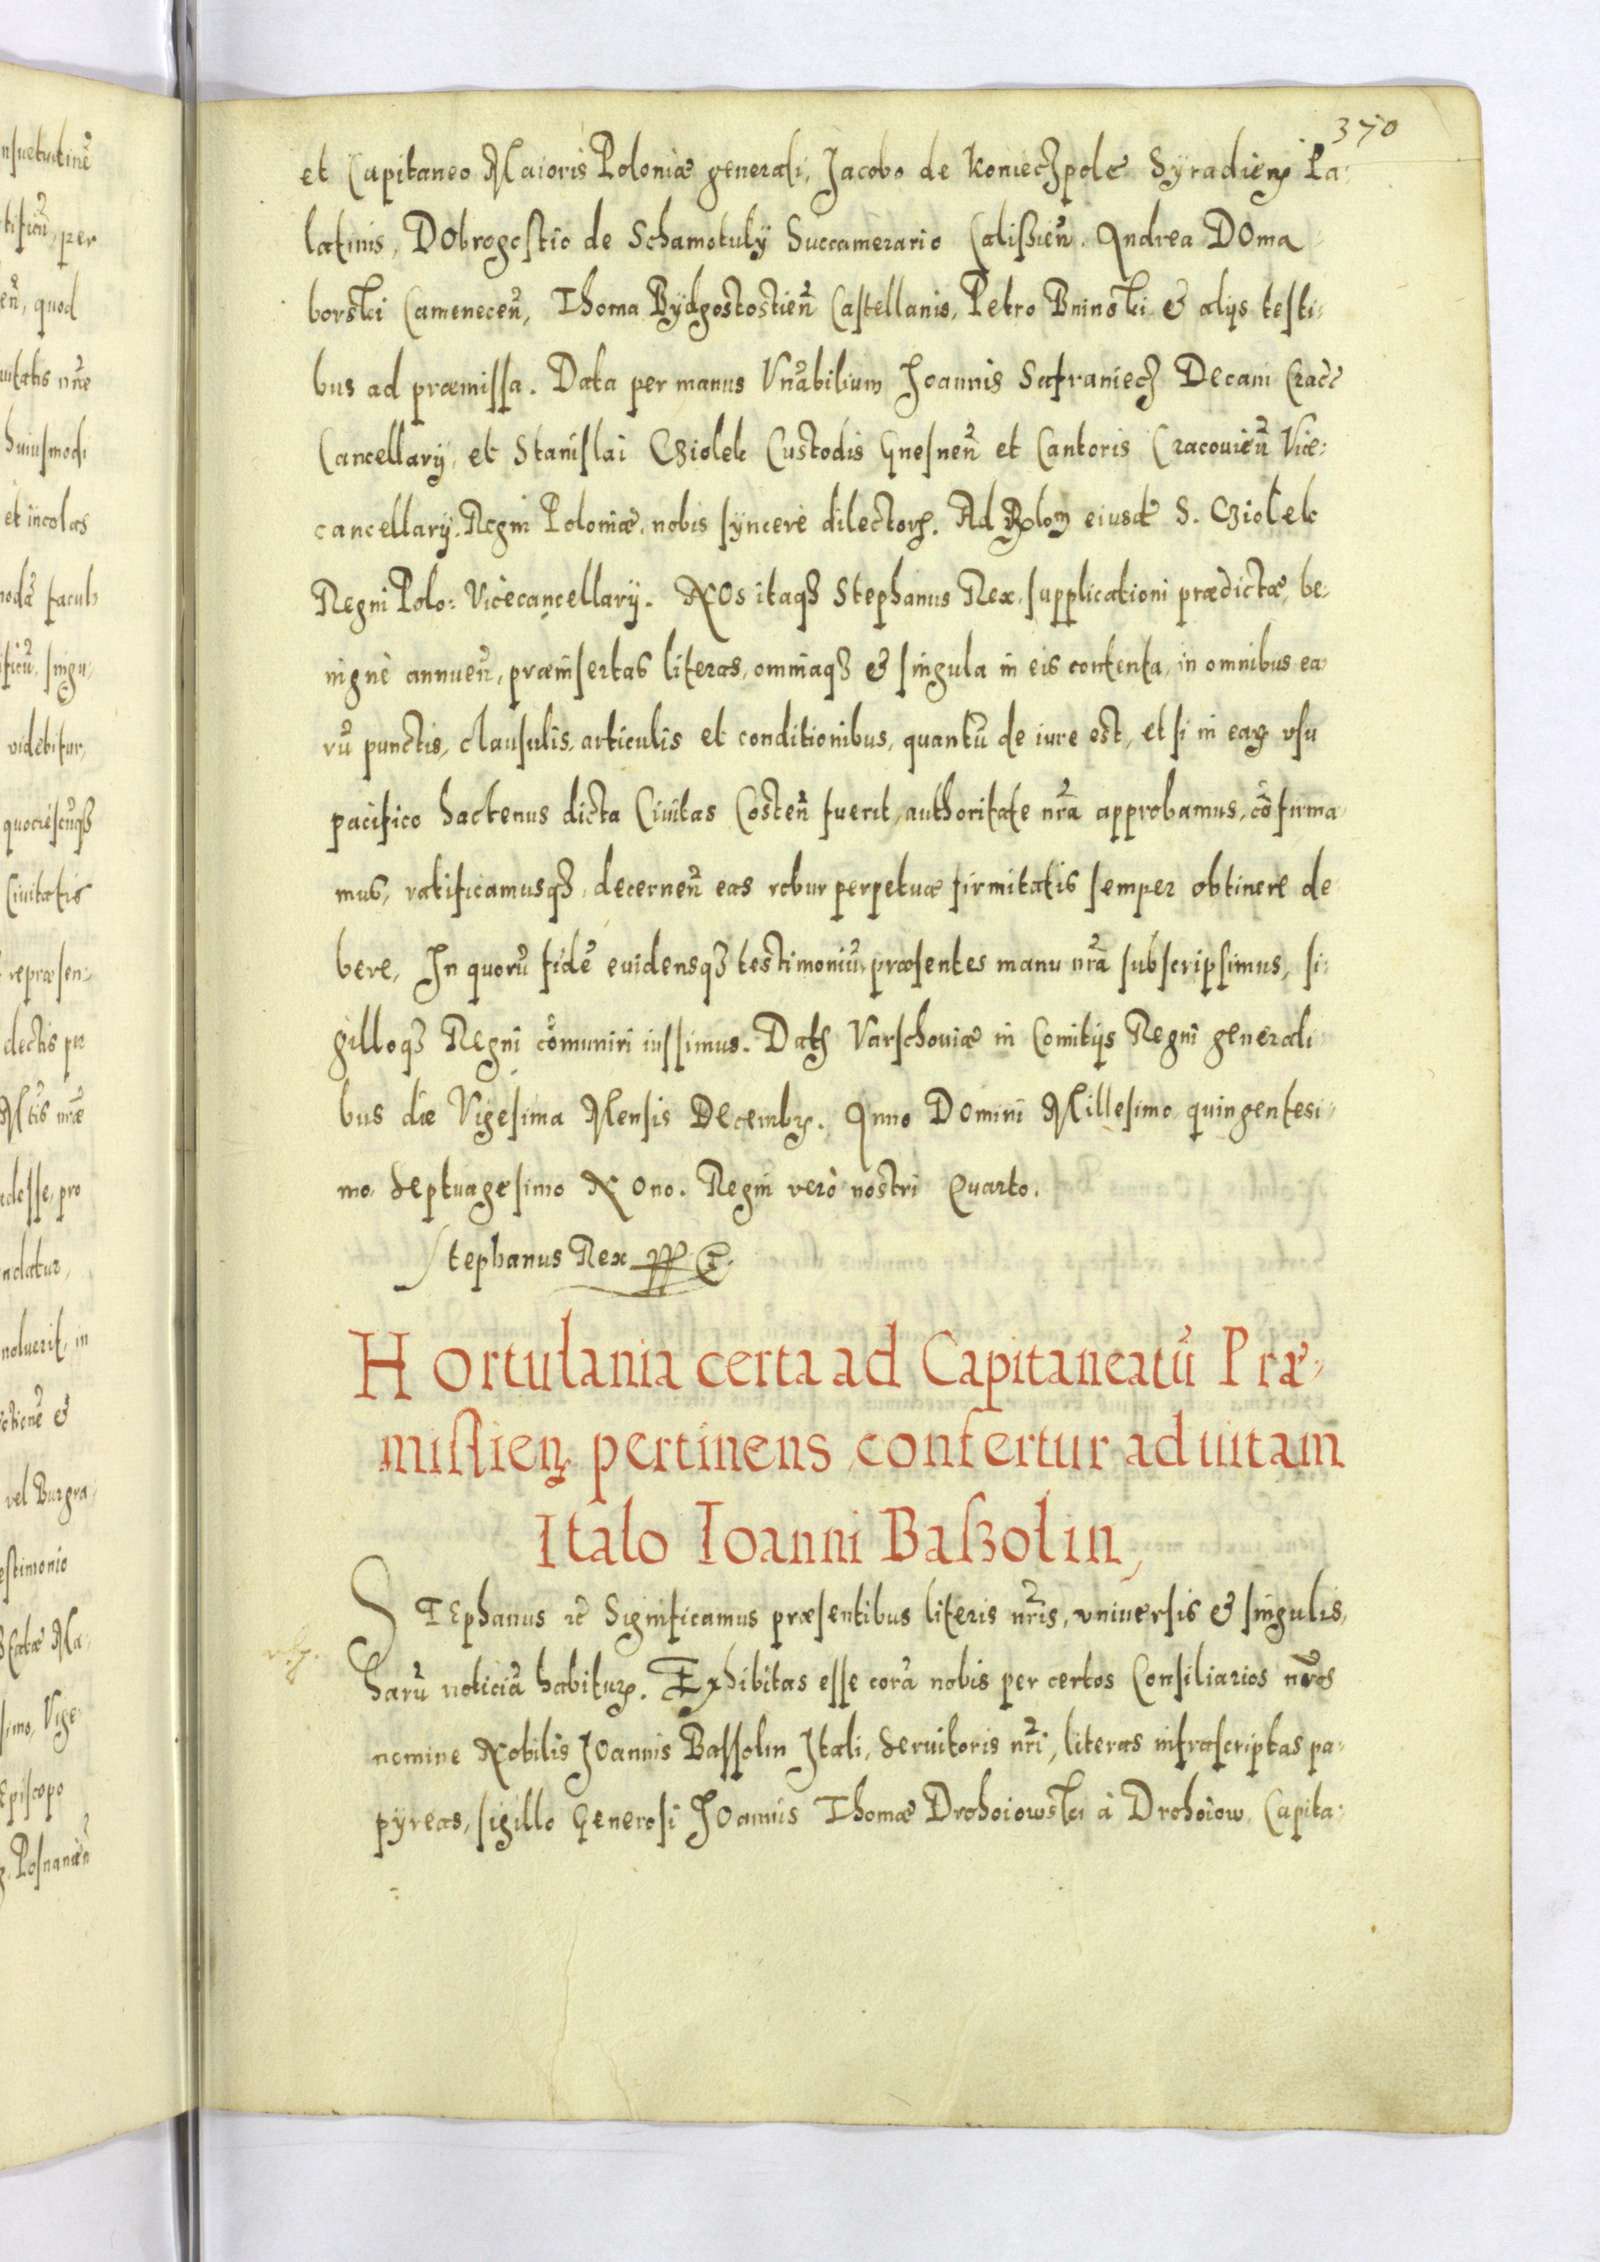 370
et Capitaneo Maioris Poloniæ generali, Jacobo de Koniechpole Syradien̄ Pa-
latinis, Dobrogostio de Schamotuly Succamerario Calißien̄. Andrea Doma-
borski Camenecen̄, Thoma Bydgostostien̄ Castellanis, Petro Bninski & alijs testi-
bus ad præmissa. Data per manus Vnābilium Joannis Safraniech Decani Crac̄
Cancellarij, et Stanislai Cziolek Custodis Gnesnen̄ et Cantoris Cracouien̄ Vice-
cancellarij. Regni Poloniæ, nobis syncerè dilectorꝝ. Ad Rɵlom eiusdē S. Cziolek
Regni Polo: Vicecancellarij. Nos itaqꝫ Stephanus Rex, supplicationi prædictæ, be-
nignè annuen̄, præinsertas literas, omniaqꝫ & singula in eis contenta, in omnibus ea-
rū punctis, clausulis, articulis et conditionibus, quantū de iure est, et si in eaꝝ vsu
pacifico hactenus dicta Ciuitas Costen̄ fuerit, authoritate nr̄a approbamus, cōfirma-
mus, ratificamusqꝫ, decernen̄ eas robur perpetuæ firmitatis semper obtinere de
bere, In quorū fidē euidensqꝫ testimoniū, præsentes manu nr̄a subscripsimus, si-
gilloqꝫ Regni cōmuniri iussimus. Datꝫ Varschouiæ in Comitijs Regni generali
bus die Vigesima Mensis Decembꝝ. Anno Domini Millesimo quingentesi-
mo Septuagesimo Nono. Regni verò nostri Quarto.
Stephanus Rex
Hortulania certa ad Capitaneatū Præ-
mislien̄ pertinens confertur ad uitam
Italo Ioanni Baßolin,
STEphanus etc̄ Significamus præsentibus literis nr̄is, vniuersis & singulis,
harū noticiā habituꝝ. Exhibitas esse corā nobis per certos Consiliarios nr̄os
nomine Nobilis Joannis Bassolin Itali, Seruitoris nr̄i, literas infrascriptas pa-
pyreas, sigillo Generosi Joannis Thomæ Drohoiowski à Drohoiow, Capita-